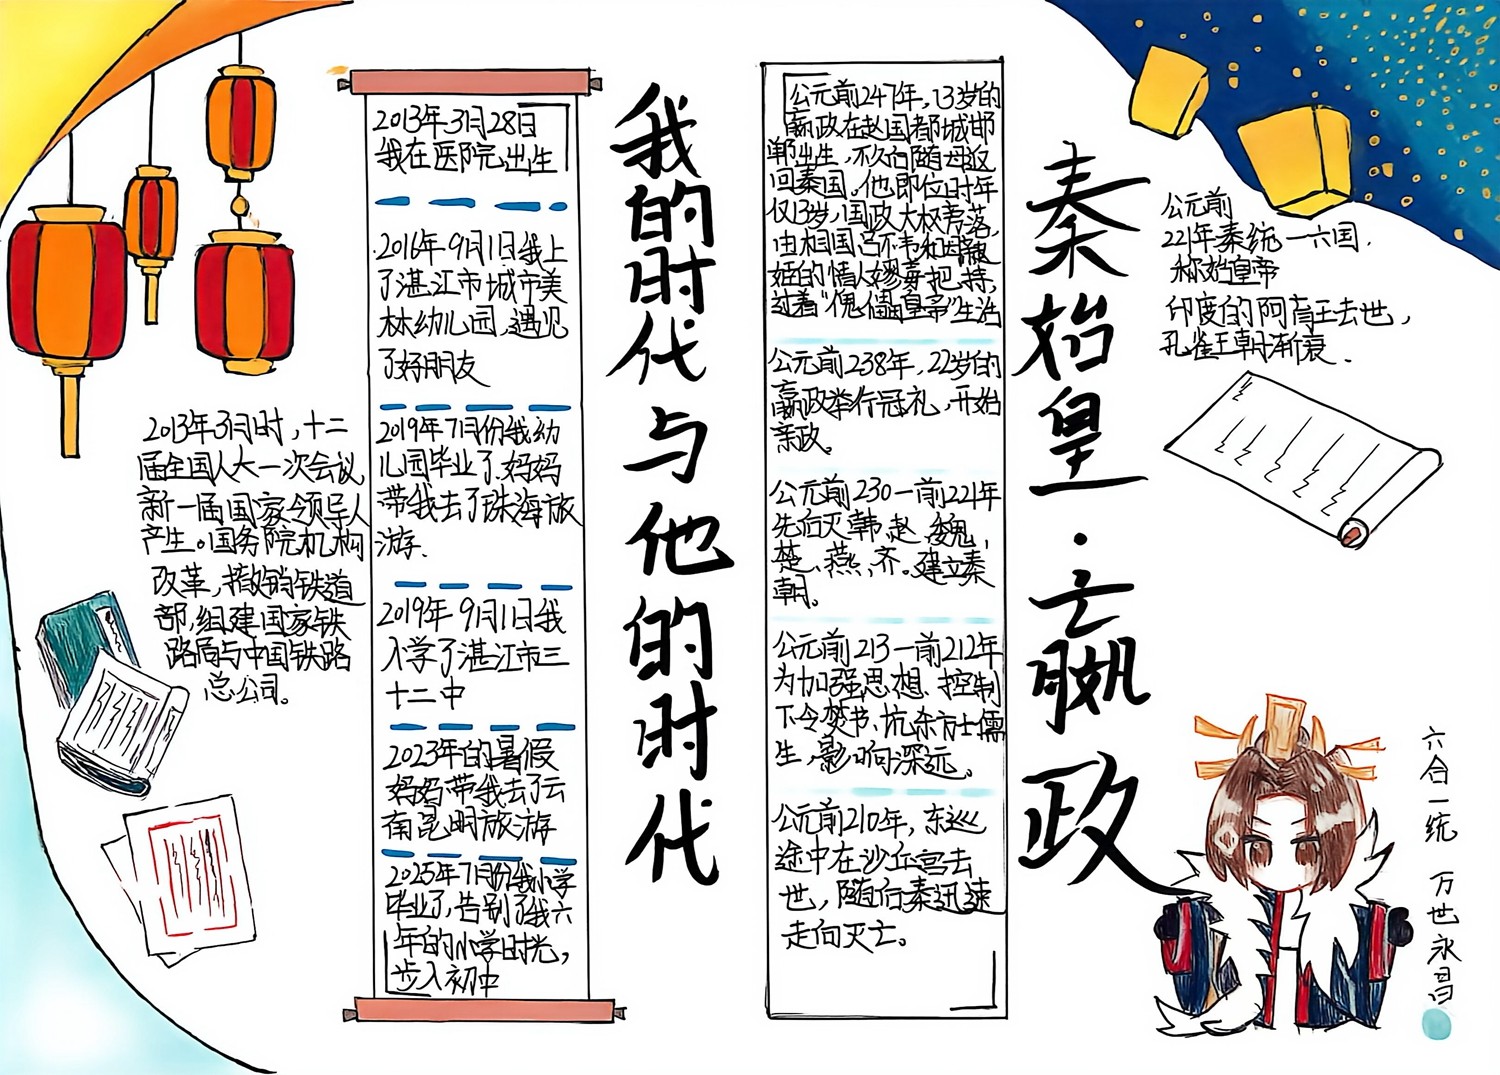 2013年3月28日
我在医院出生
2016年9月1日我上
了湛江市城市美
林幼儿园,遇见
了好朋友
2019年7月份我幼
儿园毕业了,妈妈
带我去了珠海旅
游.
2019年9月1日我
入学了湛江市三
十二中
2023年的暑假
妈妈带我去了云
南昆明旅游
2025年7月份我小学
毕业了,告别了我六
年的小学时光,
步入初中
2013年3月时,十二
届全国人大一次会议
新一届国家领导人
产生。国务院机构
改革,撤销铁道
部,组建国家铁
路局与中国铁路
总公司。
我的时代与他的时代
公元前247年,13岁的
嬴政在赵国都城邯
郸出生,不久后随母返
回秦国,他即位时年
仅13岁,国政大权旁落,
由相国吕不韦和母赵
姬的情人嫪毐把持,
过着“傀儡皇帝”生活
公元前238年,22岁的
嬴政举行冠礼,开始
亲政。
公元前230一前221年
先后灭韩、赵、魏、
楚、燕、齐。建立秦
朝。
公元前213一前212年
为加强思想、控制
下令焚书、坑杀方士儒
生,影响深远。
公元前210年,东巡
途中在沙丘宫去
世,随后秦迅速
走向灭亡。
秦始皇·嬴政
公元前
221年秦统一六国.
称始皇帝
印度的阿育王去世,
孔雀王朝渐衰.
六合一统 万世永昌